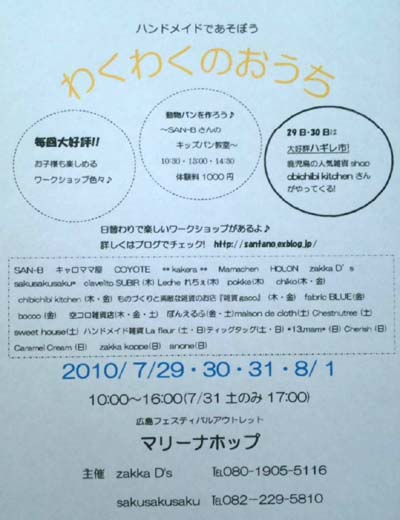 ハンドメイドであそぼう
わくわくのおうち
毎回大好評!!
お子様も楽しめる
ワークショップ色々♪
動物パンを作ろう♪
～SAN-Bさんの
キッズパン教室～
10:30・13:00・14:30
体験料1000円
29日・30日は
大好評ハギレ市!
鹿児島の人気雑貨shop
obichibi kitchenさん
がやってくる!
日替わりで楽しいワークショップがあるよ♪
詳しくはブログでチェック! http://santano.exblog.jp/
SAN-B キャロママ屋 COYOTE **kakera** Mamachen HOLON zakka D's
sakusakusaku* clavelito SUBIR (木) Leche れちぇ(木) pokke(木) chiko(木・金)
chibichibi kitchen (木・金) ものづくりと素敵な雑貨のお店『雑貨&aco』 (木・金) fabric BLUE(金)
bocoo (金) 空コロ雑貨店(木・金・土) ぽんえるふ(金・土)maison de cloth(土) Chestnutree (土)
sweet house(土) ハンドメイド雑貨 La fleur (土・日) ティッグタッグ(土・日) *13,mam* (日) Cherish (日)
Caramel Cream (日) zakka koppe(日) anone(日)
2010/7/29・30・31・8/1
10:00～16:00(7/31 土のみ 17:00)
広島フェスティバルアウトレット
マリーナホップ
主催 zakka D's ℡080-1905-5116
sakusakusaku ℡082-229-5810